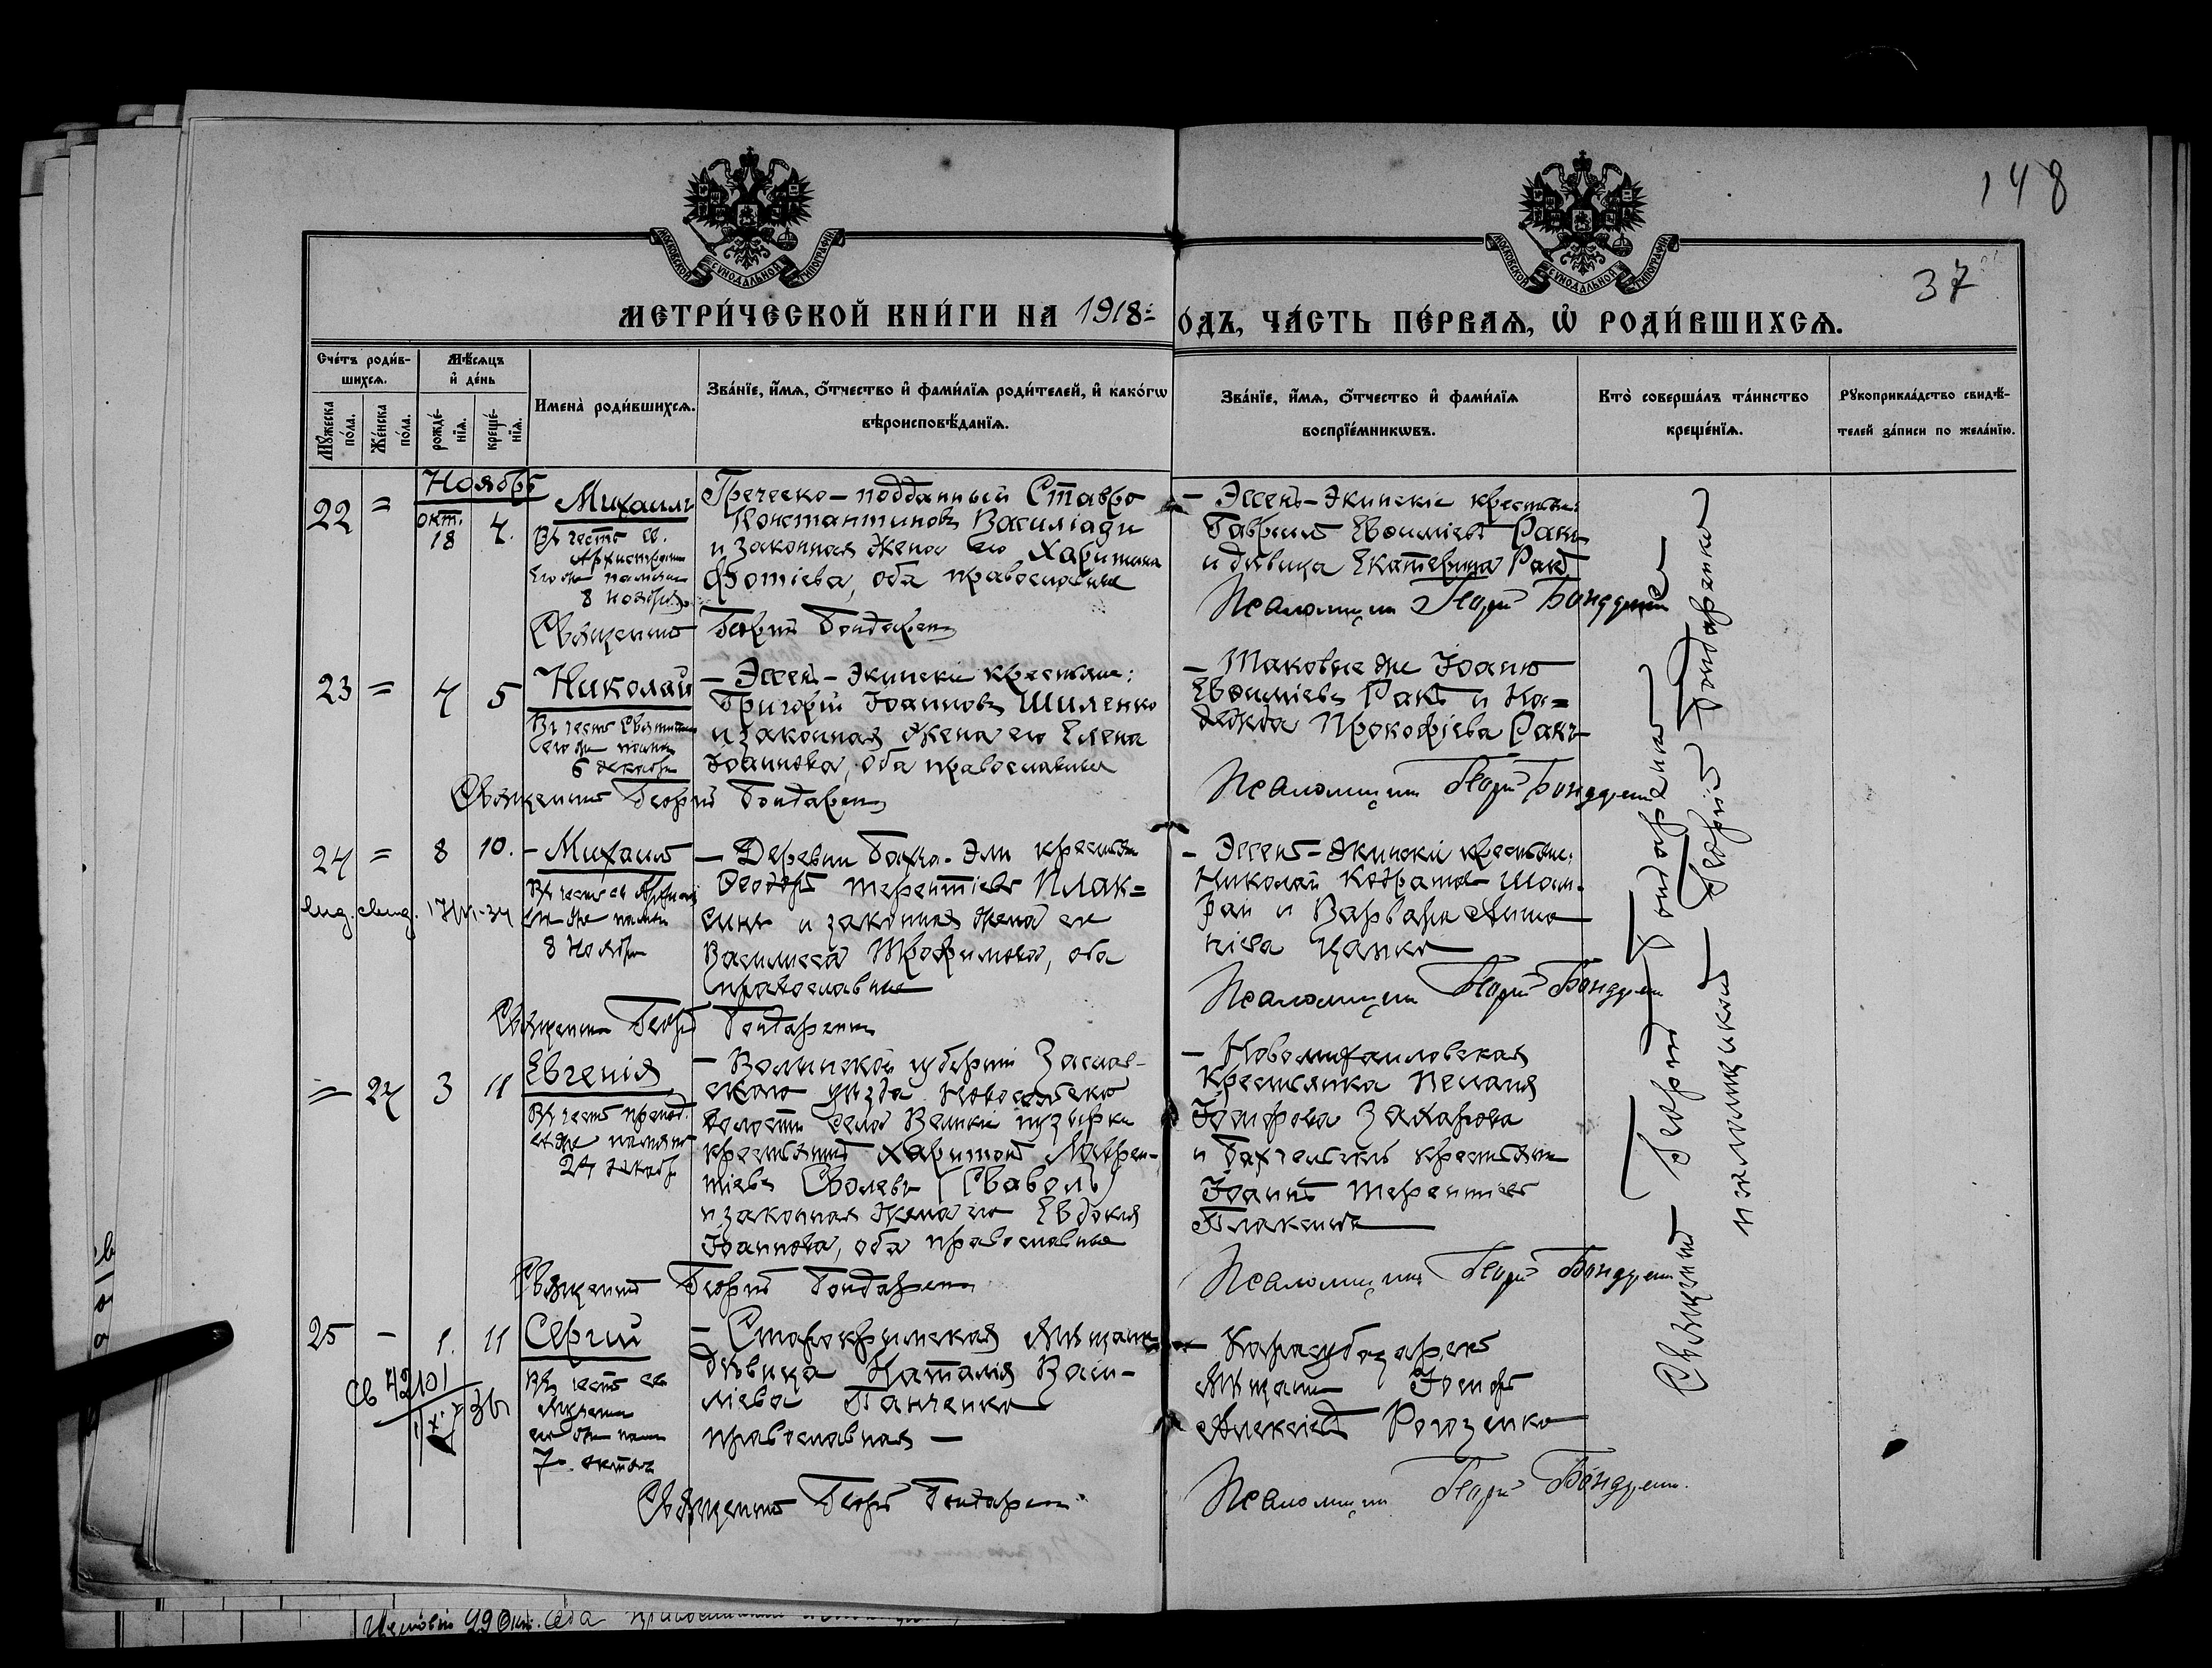 148
37
МОСКОВСКОЙ СѴНОДАЛЬНОЙ ТИПОГРАФІИ
МОСКОВСКОЙ СѴНОДАЛЬНОЙ ТИПОГРАФІИ
МЕТРИ́ЧЕСКОЙ КНИ́ГИ НА 1918: ОДЪ, ЧА́СТЬ ПЕ́РВАѦ, Ѡ҆ РОДИ́ВШИХСѦ.
Сче́тъ роди́в-
шихсѧ.
Мꙋ́жеска
по́ла.
Же́нска
по́ла.
Мѣ́сѧцъ
и҆ де́нь
рожде́-
нїѧ.
креще́-
нїѧ.
Имена̀ роди́вшихсѧ.
Зва́нїе, и҆́мѧ, ѻ҆́тчество и҆ фами́лїѧ роди́телей, и҆ како́гѡ
вѣроисповѣ́данїѧ.
Зва́нїе, и҆́мѧ, ѻ҆́тчество и҆ фами́лїѧ
воспрїе́мникѡвъ.
Кто̀ соверша́лъ та́инство
креще́нїѧ.
Рꙋкоприкла́дство свидѣ́-
телей за́писи по жела́нїю.
Ноябрь
22 = окт. 18 4. Михаилъ
Въ честь св.
8 ноября
Греческо-подданный Ставро
Константиновъ Василіади
и законная жена его Харитина
Фотіева, оба православные
Священникъ Георгій Бондаренко
- Эссенъ-Экинскіе крестьяне:
Гавріилъ Евѳиміевъ Ракъ
и дѣвица Екатерина Ракъ
Псаломщикъ Георгій Бондаренко
23 = 4 5 Николай
Въ честь Святителя
6 декабря
- Эссенъ-Экинскіе крестьяне:
Григорій Іоанновъ Шиленко
и законная жена его Елена
Іоаннова, оба православные
Священникъ Георгій Бондаренко
- Таковые же Іоаннъ
Евѳиміевъ Ракъ и На=
дежда Прокофіева Ракъ
Псаломщикъ Георгій Бондаренко
24 = 8 10. - Михаилъ
8 ноября
- Деревни Бахча-Эли крестьяне
Ѳеодоръ Терентіевъ Плак=
синъ и законная жена его
Василиса Трофимова, оба
православные
Священникъ Георгій Бондаренко
- Эссенъ-Экинскіе крестьяне:
Николай
и Варвара
Цапко
Псаломщикъ Георгій Бондаренко
= 24 3 11 Евгенія
Въ честь препод.
24 декабря
- Волынской губерніи Заслав-
скаго уѣзда
волости села Великіе Пузырки
крестьянинъ Харитонъ Лаврен-
тіевъ Сволевъ (Сваволь)
и законная жена его Евдокія
Іоаннова, оба православные
Священникъ Георгій Бондаренко
- Новомихаиловская
крестьянка Пелагія
Захарова
и крестьянинъ
Іоаннъ Терентіевъ
Плаксинъ
Псаломщикъ Георгій Бондаренко
25 - 1. 11 Сергій
Въ честь св.
7 октября
- Старокрымская мѣщанка
дѣвица Наталія Васи-
ліева Панченко
православная -
Священникъ Георгій Бондаренко
- Карасубазарскій
мѣщанинъ Іосифъ
Алексіевъ Рогозенко
Псаломщикъ Георгій Бондаренко.
Священникъ Георгій Бондаренко
псаломщикъ Георгій Бондаренко